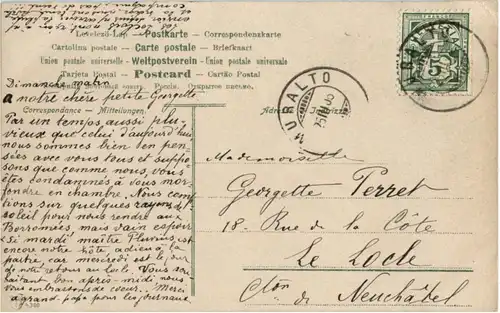 Levelező-Lap – Postkarte – Correspondenzkarte
Cartolina postale – Carte postale – Briefkaart
Union postale universelle – Weltpostverein – Union postale universelle
Tarjeta Postal – Postcard – Cartão Postal
FRANCO
5
MURALTO
MURALTO
Dimanche matin
A notre chère petite Georgette
Correspondance – Mitteilungen
Par un temps aussi plu-
vieux que celui d'aujourd'hui
nous sommes bien en pen-
sées avec vous tous et suppo-
sons que comme nous, vous
êtes condamnés à vous mor-
fondre en chambre. Nous comp-
tions sur quelques rayons de
soleil pour nous rendre aux
Borromées, mais vain espoir
Si mardi maître Pluvius est
encore notre hôte, adieu la
partie, car mercredi est le jour
de notre retour au Locle. Vous sou-
haitant bon après-midi nous
vous embrassons de coeur. Merci
à grand-papa pour les journaux
Mademoiselle
Georgette Perret
18 – Rue de la Côte
Le Locle
Cton de Neuchâtel